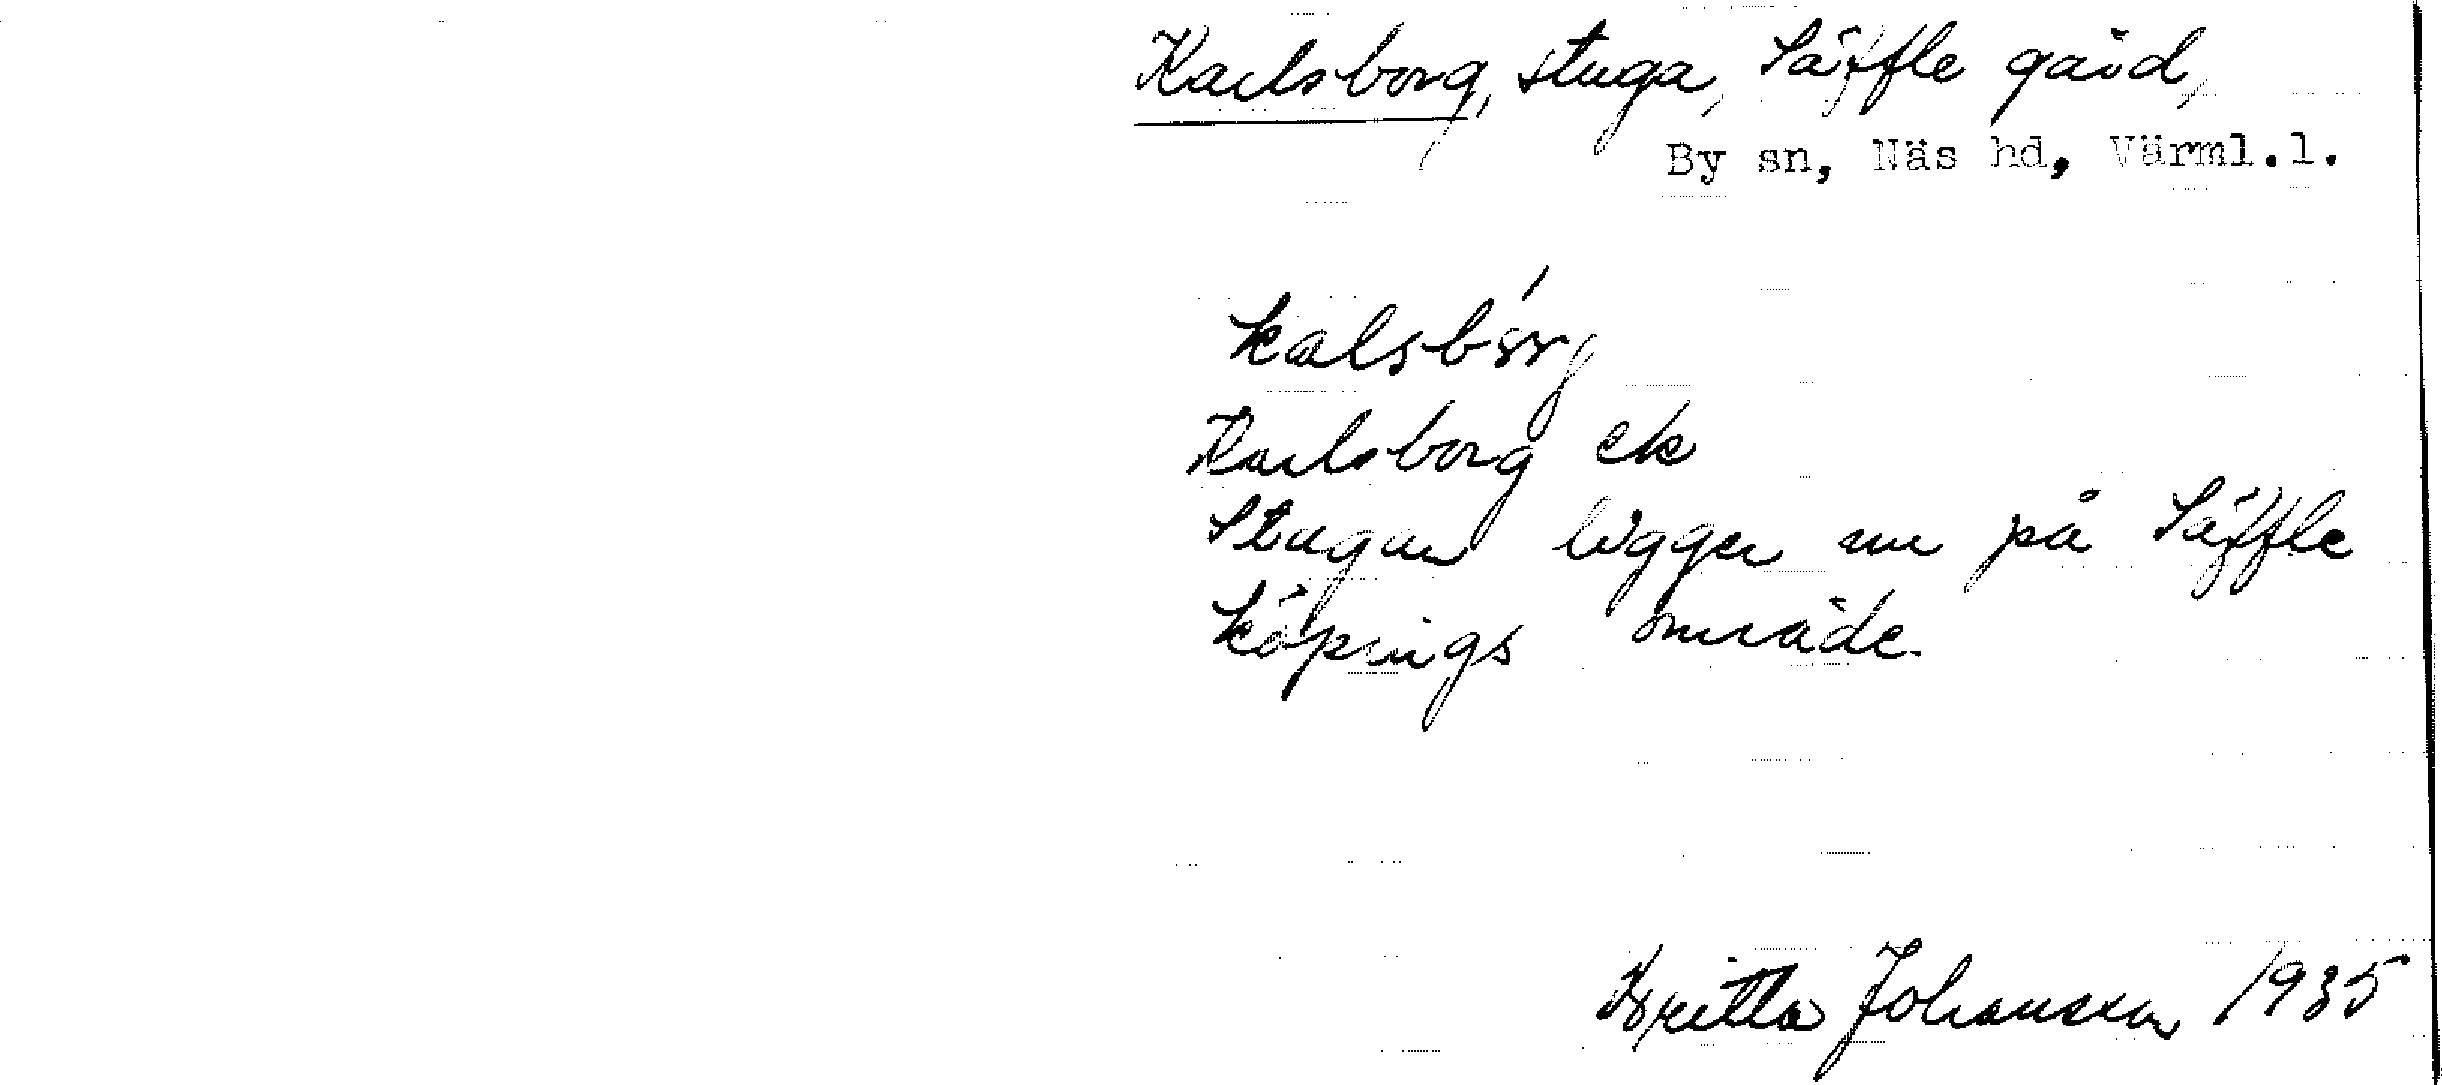 Karlsborg, stuga, Säffle gård,
By sn, Näs hd, Värml.l.
kalsbórj
Karlsborg ek
Stugan ligger nu på Säffle
köpings område.
Britta Johansson 1935